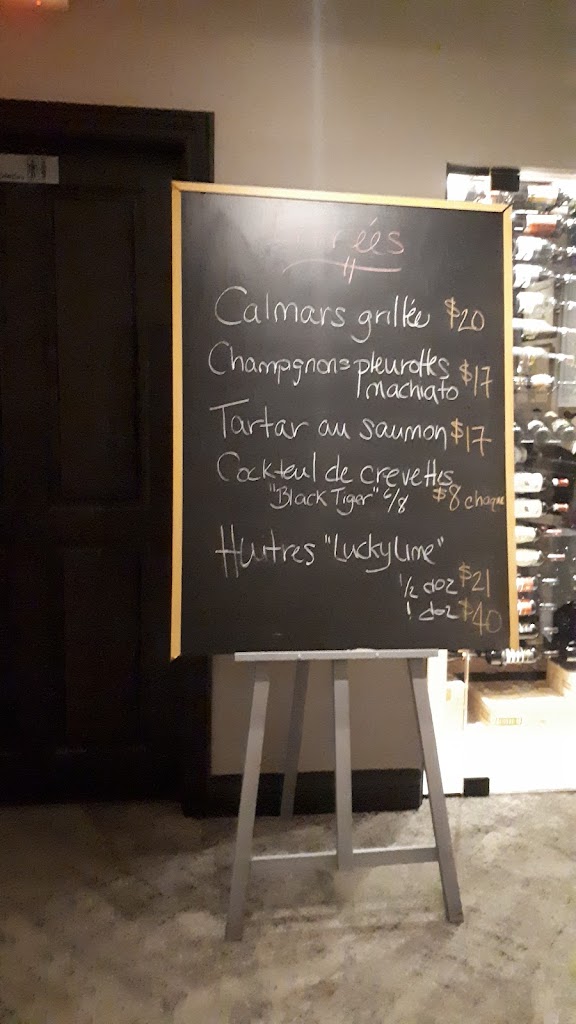 Entrées
Calmars grillée $20
Champignons pleurottes $17
machiato
Tartar au saumon $17
Cockteul de crevettes
"Black Tiger" 6/8 $8 chaque
Huitres "Lucky Lime"
1/2 doz $21
1 doz $40